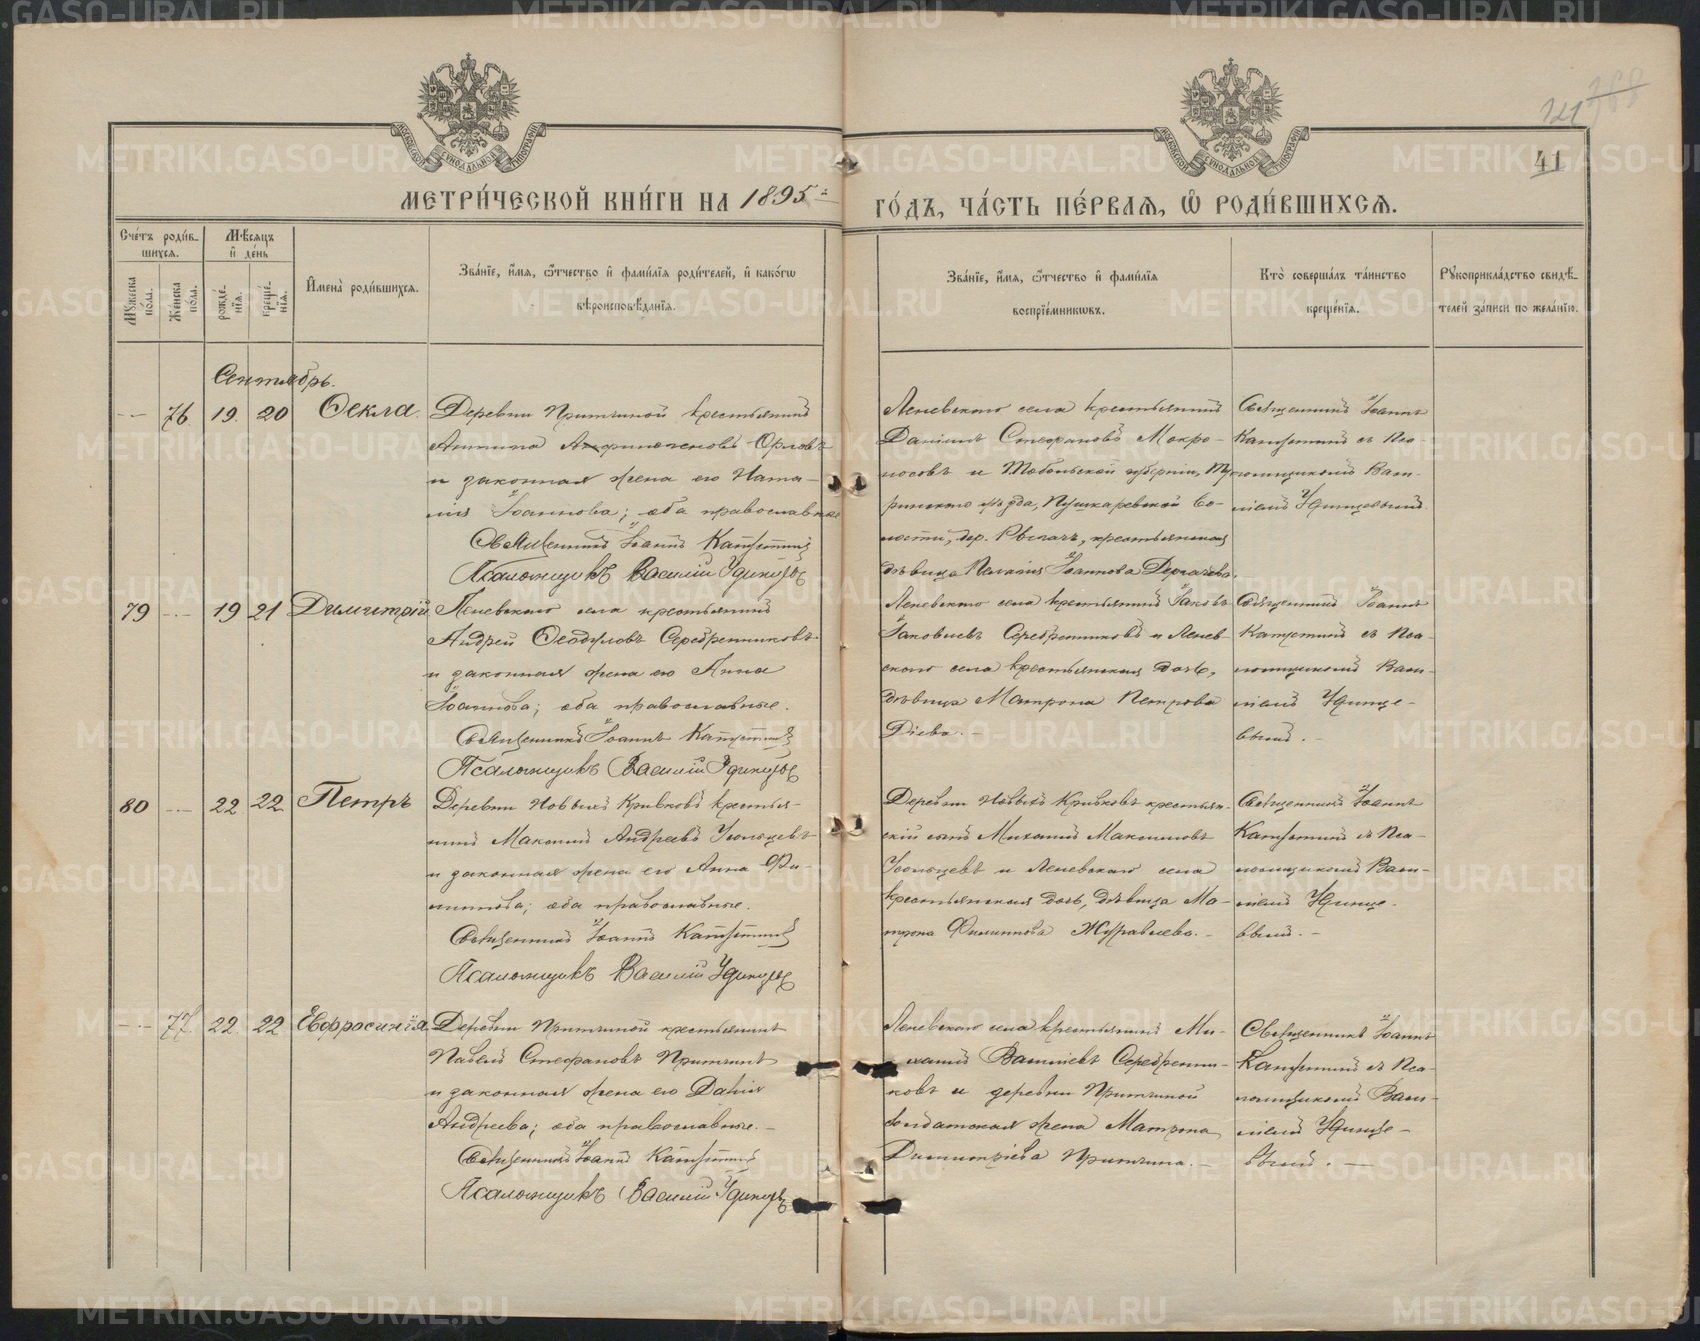 41
МЕТРИ́ЧЕСКОЙ КНИ́ГИ НА 1895 го́дъ, ЧА́СТЬ ПЕ́РВАѦ, Ѽ РОДИ́ВШИХСѦ.
Сче́тъ роди́вшихся.
Мѣ́сяцъ и де́нь
Мꙋ́жеска по́ла.
Же́нска по́ла.
рожде́нїя.
креще́нїя.
И҆мена̀ роди́вшихся.
Зва́нїе, и҆́мя, ѻ҆́тчество и҆ фами́лїя роди́телей, и҆ како́гѡ вѣроисповѣ́данїя.
Зва́нїе, и҆́мя, ѻ҆́тчество и҆ фами́лїя воспрїе́мникѡвъ.
Кто̀ соверша́лъ та́инство креще́нїя.
Рꙋкоприкла́дство свидѣ́телей за́писи по жела́нїю.
Сентябрь.
76 19 20 Ѳекла.
Деревни Притчиной крестьянинъ
Орловъ
и законная жена его Ната-
лія Іоаннова; оба православные
Священникъ Іоаннъ
Псаломщикъ Василій
Леневскаго села крестьянинъ
Даніилъ Стефановъ Мокро-
носовъ и Тобольской губерніи, Ту-
ринскаго уѣзда, Пушкаревской во-
лости, дер. крестьянская
дѣвица Пелагія Іоаннова
Священникъ Іоаннъ
съ Пса-
ломщикомъ Васи-
ліемъ
79 19 21 Димитрій
Леневскаго села крестьянинъ
Андрей Ѳеодуловъ Серебренниковъ
и законная жена его Анна
Іоаннова; оба православные.
Священникъ Іоаннъ
Псаломщикъ Василій
Леневскаго села крестьянинъ Іаковъ
Іаковлевъ Серебренниковъ и Ленев-
скаго села крестьянская дочь,
дѣвица Матрона Петрова
Діева.
Священникъ Іоаннъ
съ Пса-
ломщикомъ Васи-
ліемъ
вымъ.
80 22 22 Петръ
Деревни Новыхъ Кривковъ крестья-
нинъ Андреевъ Усольцевъ
и законная жена его Анна Фи-
липпова; оба православные.
Священникъ Іоаннъ
Псаломщикъ Василій
Деревни Новыхъ Кривковъ крестьян-
скій сынъ Михаилъ Максимовъ
Усольцевъ и Леневскаго села
крестьянская дочь, дѣвица Ма-
трона Филиппова Журавлева.
Священникъ Іоаннъ
съ Пса-
ломщикомъ Васи-
ліемъ
вымъ.
77. 22 22 Евфросинія
Деревни Притчиной крестьянинъ
Павелъ Стефановъ Притчинъ
и законная жена его Дарія
Андреева; оба православные.
Священникъ Іоаннъ
Псаломщикъ Василій
Леневскаго села крестьянинъ Ми-
хаилъ Васильевъ Серебренни-
ковъ и деревни Притчиной
солдатская жена Матрона
Димитріева Притчина.
Священникъ Іоаннъ
съ Пса-
ломщикомъ Васи-
ліемъ
вымъ.
METRIKI.GASO-URAL.RU